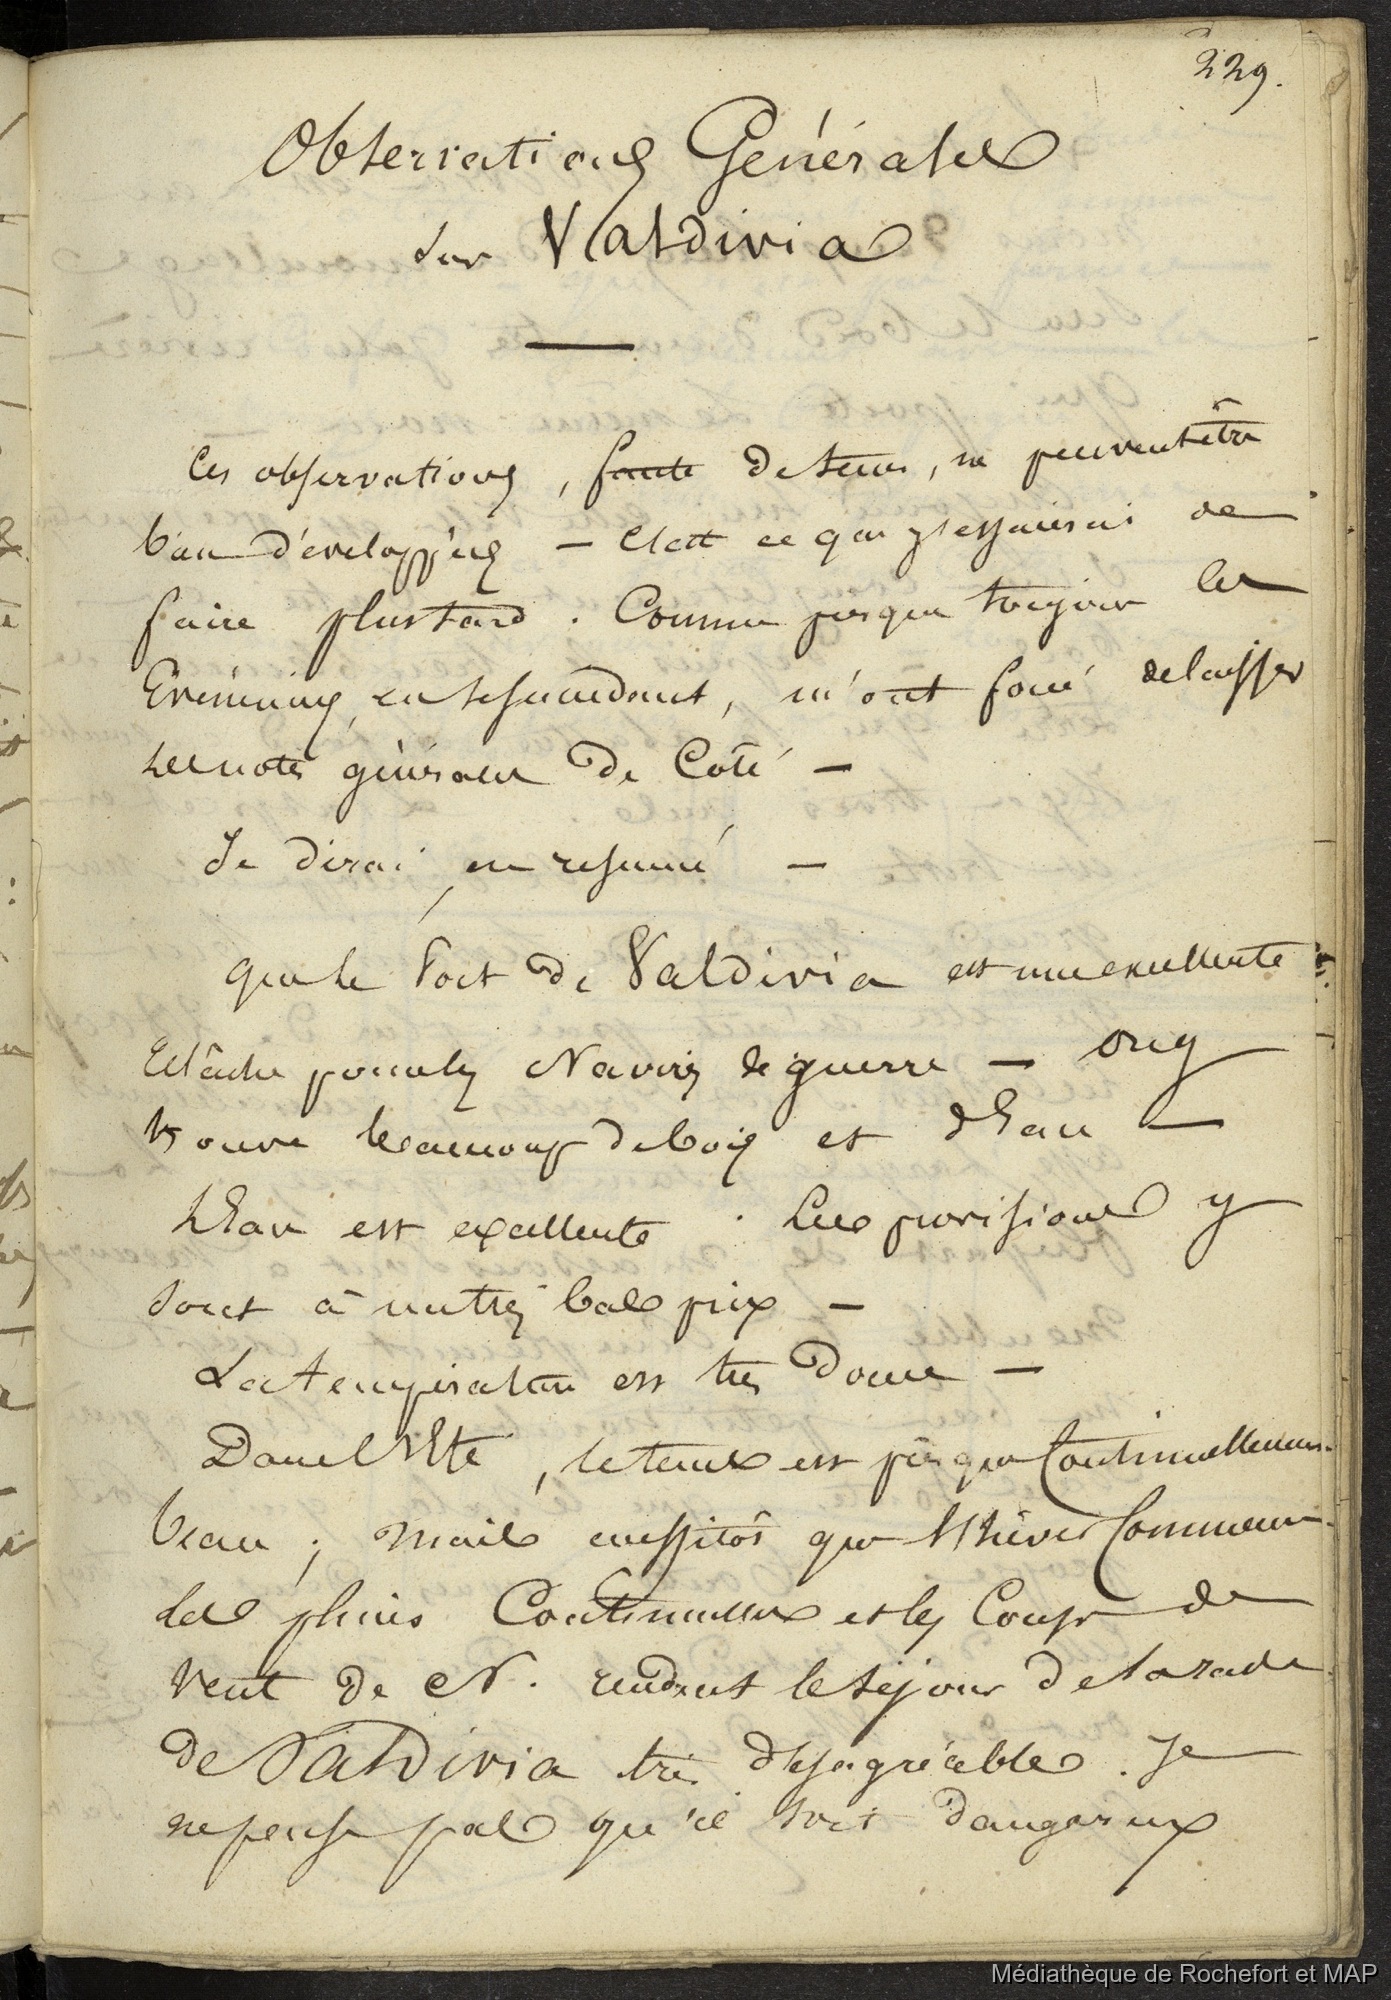 229.
Observations Générales
sur Valdivia
Ces observations, faute de tems, ne peuvent être
bien dévelopées — C'est ce que j'essaierai de
faire plus tard. Comme presque toujours les
Evénemens, en se succédant, m'ont forcé de laisser
les notes générales de Coté —
Je dirai, en resumé —
que le Port de Valdivia est une excellente
relâche pour les Navires de guerre — On y
trouve beaucoup de bois et d'Eau —
L'Eau est excellente. Les provisions y
sont à un très bas prix —
La température est très Douce —
Dans l'Eté, le tems est presque Continuellement
beau; mais aussitôt que l'hiver Commence
les pluies Continuelles et les Coups de
vent de N. rendent le séjour de la rade
de Valdivia très désagréable. Je
ne pense pas qu'il soit dangereux
Médiathèque de Rochefort et MAP